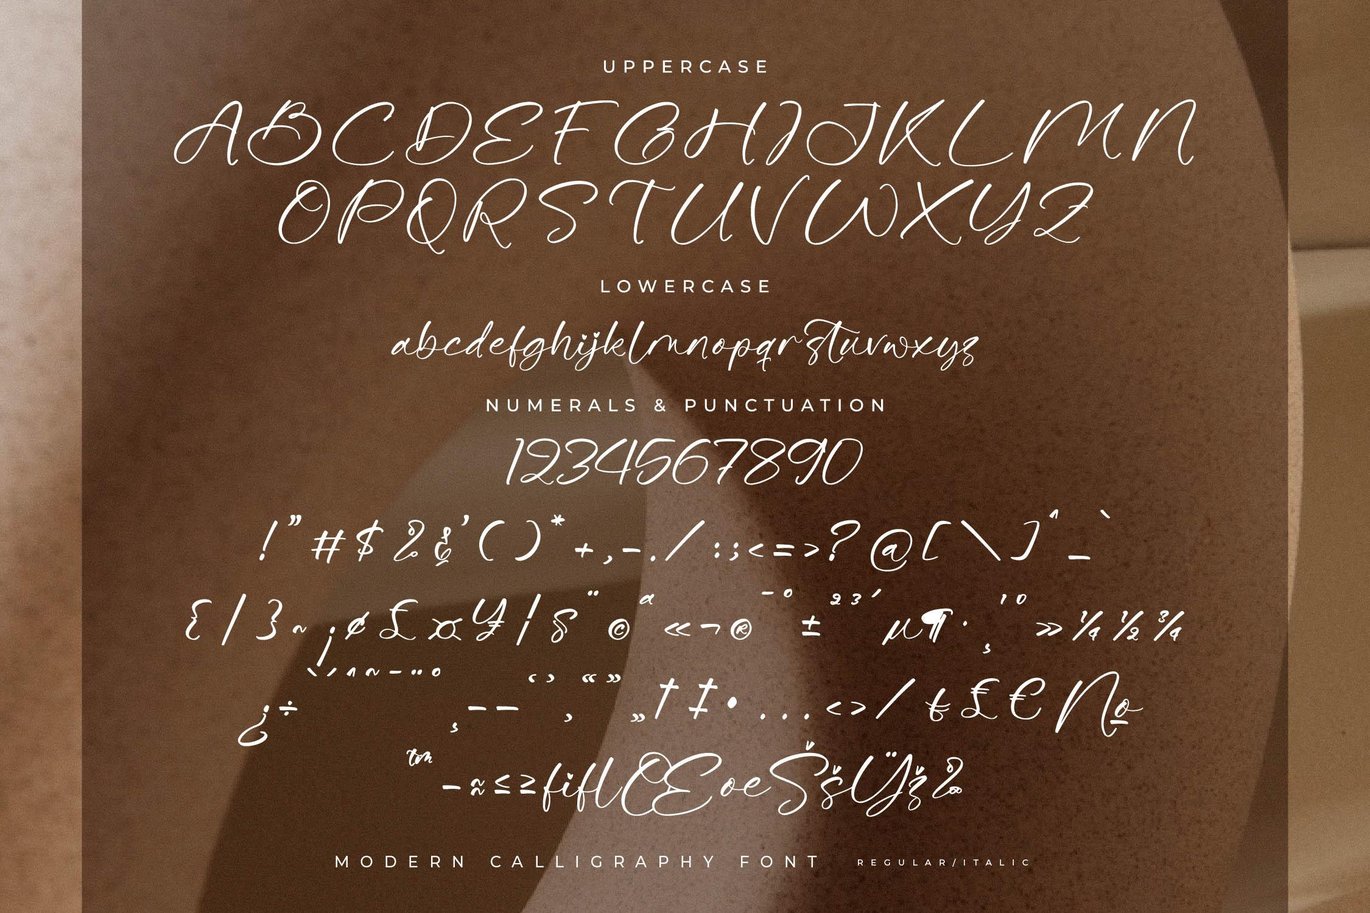 UPPERCASE
ABCDEFGHIJKLMN
OPQRSTUVWXYZ
LOWERCASE
abcdefghijklmnopqrstuvwxyz
NUMERALS & PUNCTUATION
1234567890
!"#$%&'()*+,-./:;<=>?@[\]^_`
{|}~¡¢£¤¥¦§¨©ª«¬®¯°±²³´µ¶·¸¹º»¼½¾
¿÷ˋˊˆ˜¯¨° ‚–—‘’‚“”„†‡•…‹›⁄₺₤€№
™−≈≤≥fiflŒœŠšŸž‰
MODERN CALLIGRAPHY FONT REGULAR/ITALIC